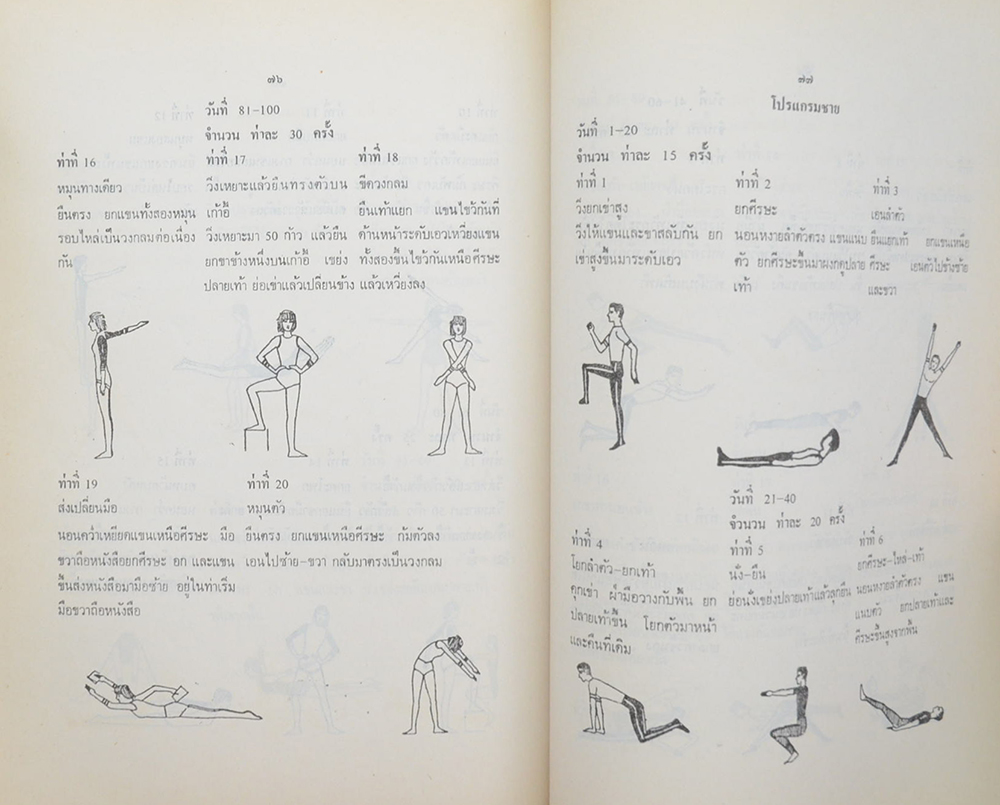 ๗๖
วันที่ 81-100
จำนวน ท่าละ 30 ครั้ง
ท่าที่ 16
หมุนทางเดียว
ยืนตรง ยกแขนทั้งสองหมุน
รอบไหล่เป็นวงกลมต่อเนื่อง
กัน
ท่าที่ 17
วิ่งเหยาะแล้วยืนทรงตัวบน
เก้าอี้
วิ่งเหยาะมา 50 ก้าว แล้วยืน
ยกขาข้างหนึ่งบนเก้าอี้ เขย่ง
ปลายเท้า ย่อเข่าแล้วเปลี่ยนข้าง
ท่าที่ 18
ขีดวงกลม
ยืนเท้าแยก แขนไขว้กันที่
ด้านหน้าระดับเอวเหวี่ยงแขน
ทั้งสองขึ้นไขว้กันเหนือศีรษะ
แล้วเหวี่ยงลง
ท่าที่ 19
ส่งเปลี่ยนมือ
นอนคว่ำเหยียดแขนเหนือศีรษะ มือ
ขวาถือหนังสือยกศีรษะ อก และแขน
ขึ้นส่งหนังสือมามือซ้าย อยู่ในท่าเริ่ม
มือขวาถือหนังสือ
ท่าที่ 20
หมุนตัว
ยืนตรง ยกแขนเหนือศีรษะ ก้มตัวลง
เอนไปซ้าย-ขวา กลับมาตรงเป็นวงกลม
๗๗
โปรแกรมชาย
วันที่ 1-20
จำนวน ท่าละ 15 ครั้ง
ท่าที่ 1
วิ่งยกเข่าสูง
วิ่งให้แขนและขาสลับกัน ยก
เข่าสูงขึ้นมาระดับเอว
ท่าที่ 2
ยกศีรษะ
นอนหงายลำตัวตรง แขนแนบ
ตัว ยกศีรษะขึ้นมาผงกดูปลาย
เท้า
ท่าที่ 3
เอนลำตัว
ยืนแยกเท้า ยกแขนเหนือ
ศีรษะ เอนตัวไปข้างซ้าย
และขวา
วันที่ 21-40
จำนวน ท่าละ 20 ครั้ง
ท่าที่ 4
โยกลำตัว-ยกเท้า
คุกเข่า ฝ่ามือวางกับพื้น ยก
ปลายเท้าขึ้น โยกตัวมาหน้า
และคืนที่เดิม
ท่าที่ 5
นั่ง-ยืน
ย่อนั่งเขย่งปลายเท้าแล้วลุกยืน
ท่าที่ 6
ยกศีรษะ-ไหล่-เท้า
นอนหงายลำตัวตรง แขน
แนบตัว ยกปลายเท้าและ
ศีรษะขึ้นสูงจากพื้น